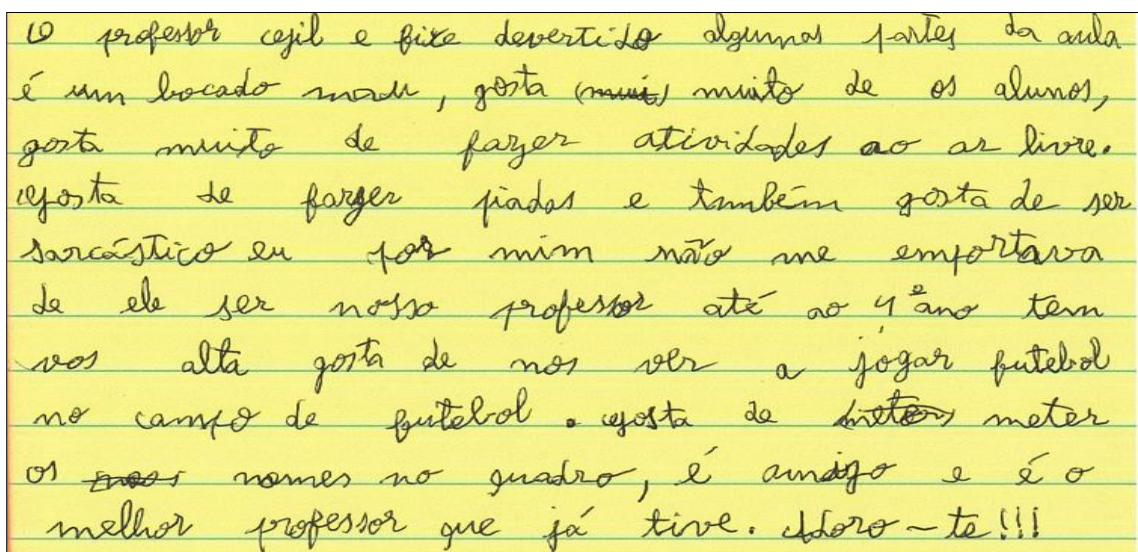 O professor Gil e fixe devertido algumas partes da aula
é um bocado mau, gosta (mui) muito de os alunos,
gosta muito de fazer atividades ao ar livre.
Gosta de farzer piadas e também gosta de ser
sarcástico eu por mim não me emportava
de ele ser nosso professor até ao 4º ano tem
vos alta gosta de nos ver a jogar futebol
no campo de futebol. Gosta de meter
os nomes no quadro, é amigo e é o
melhor professor que já tive. Adoro-te!!!